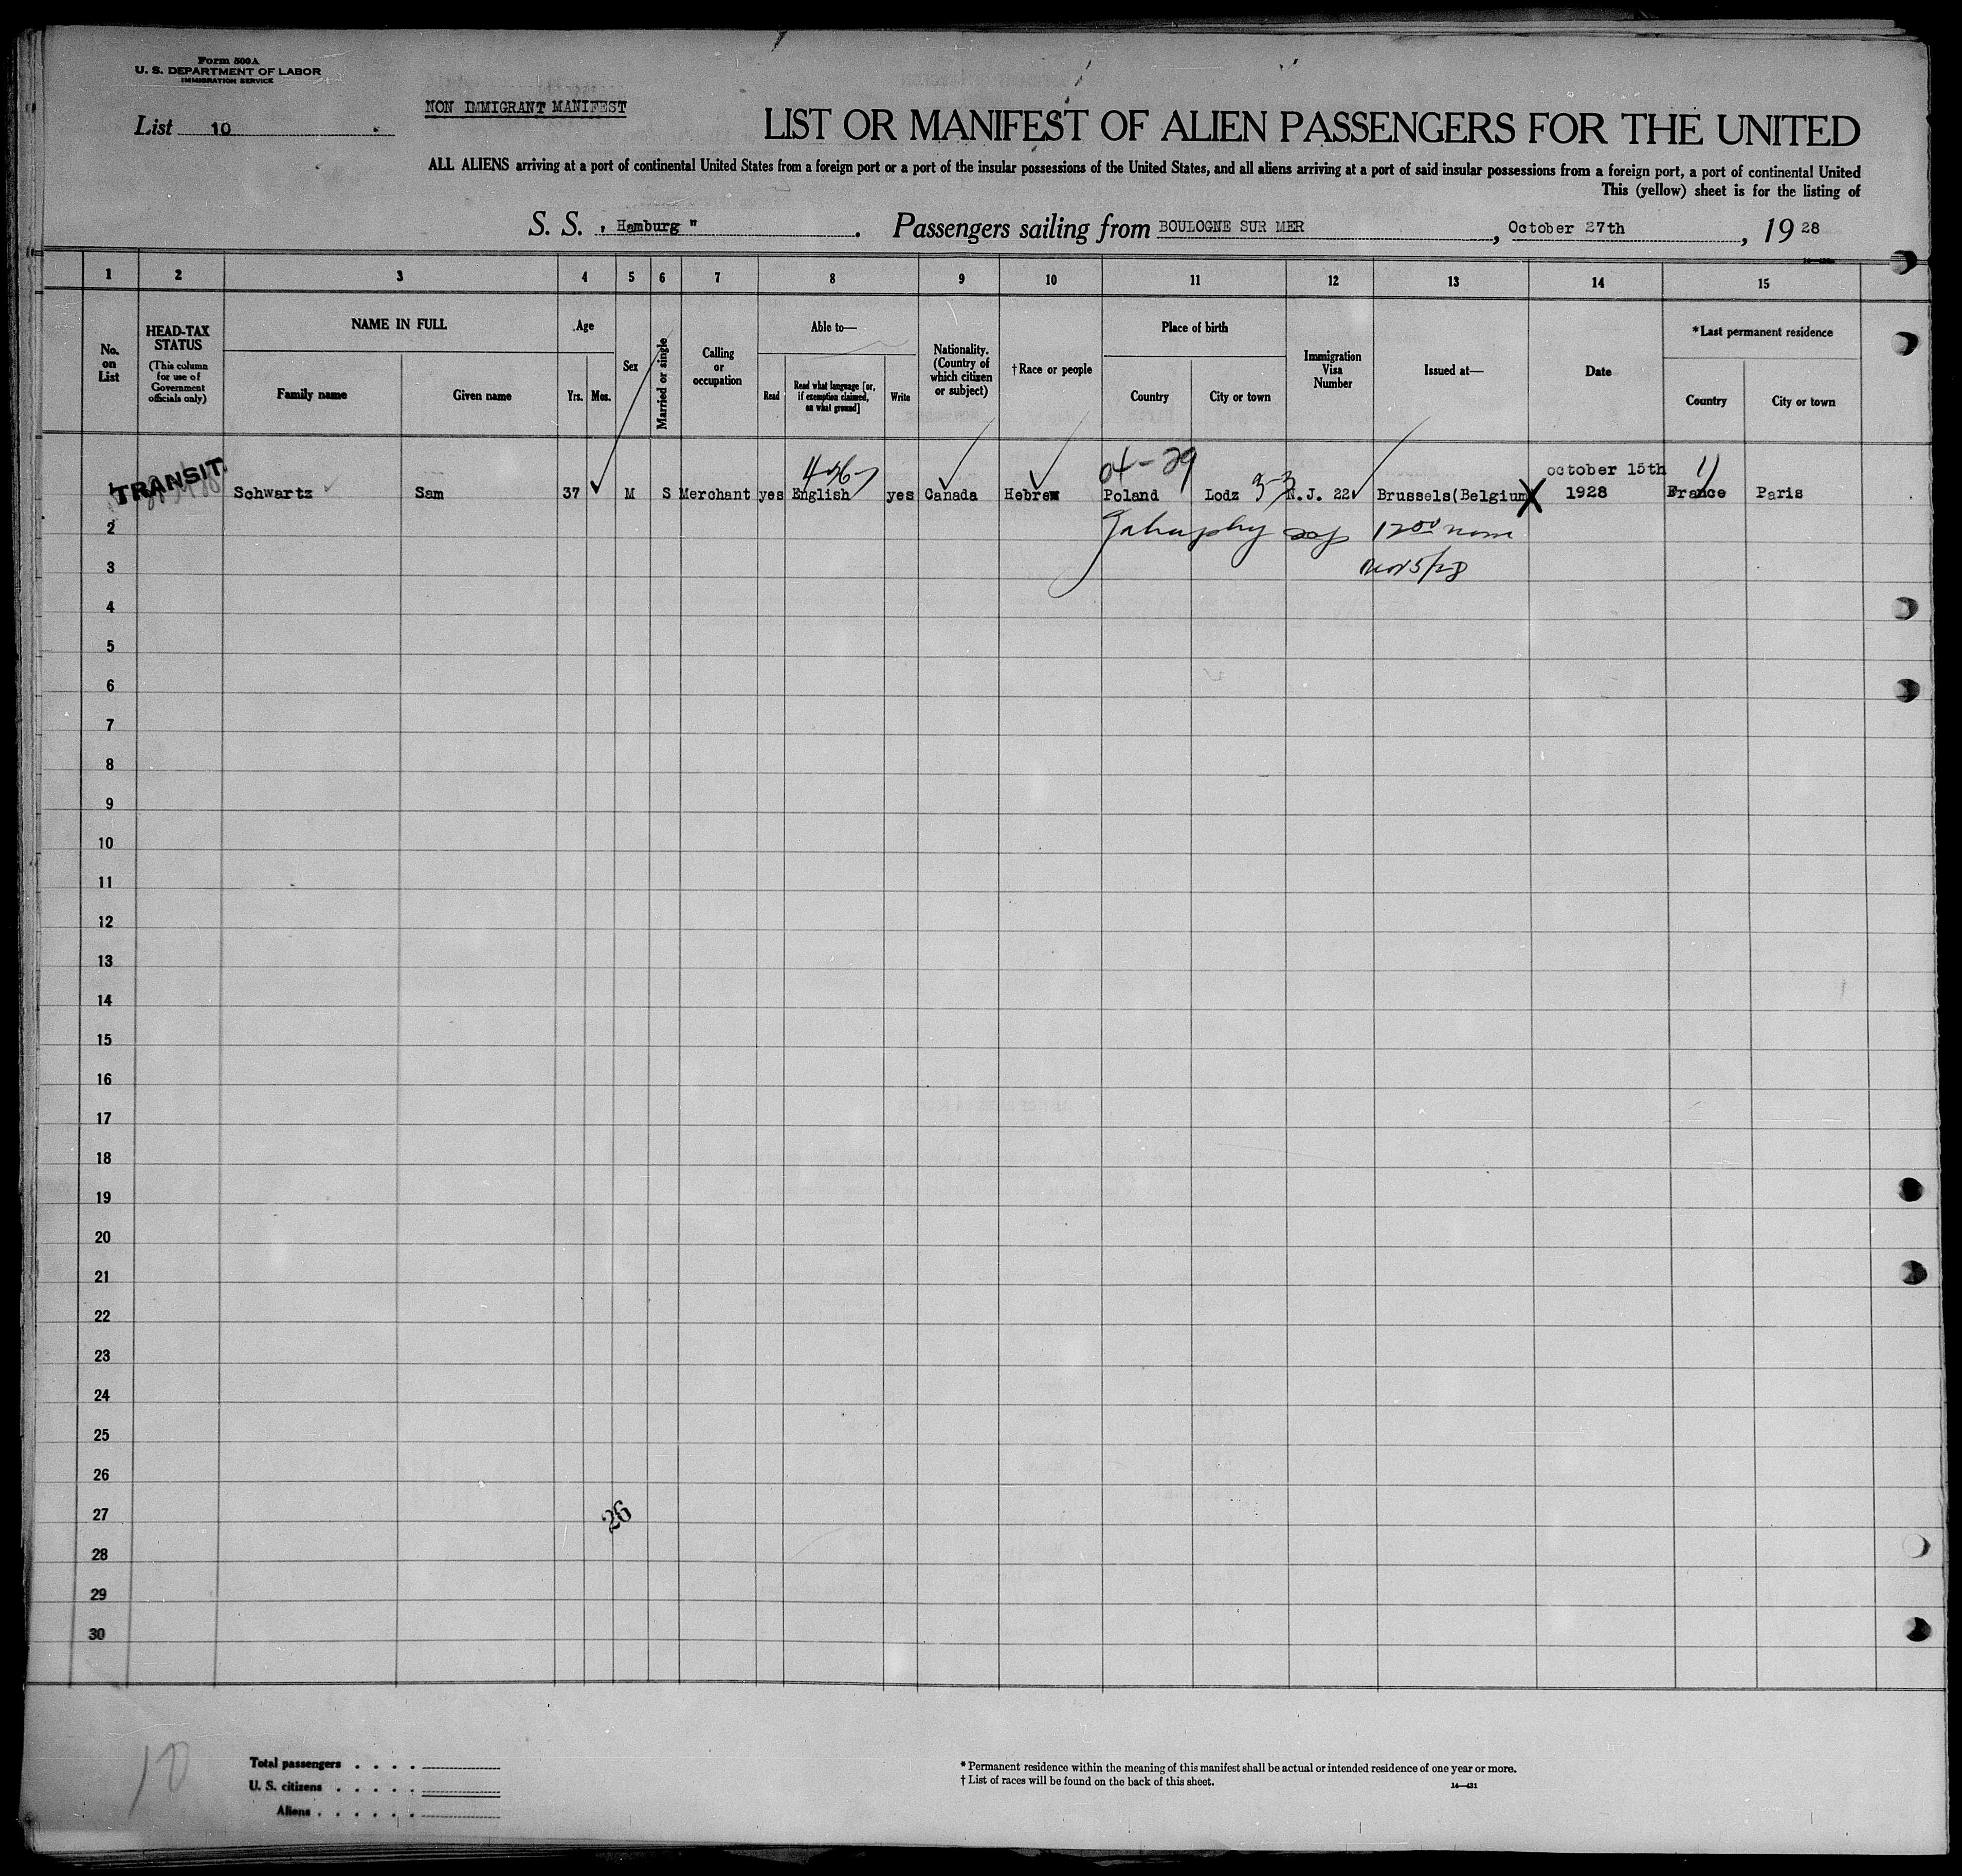 Form 500A
U. S. DEPARTMENT OF LABOR
IMMIGRATION SERVICE
NON IMMIGRANT MANIFEST
List 10
LIST OR MANIFEST OF ALIEN PASSENGERS FOR THE UNITED
ALL ALIENS arriving at a port of continental United States from a foreign port or a port of the insular possessions of the United States, and all aliens arriving at a port of said insular possessions from a foreign port, a port of continental United
This (yellow) sheet is for the listing of
S. S. , Hamburg " . Passengers sailing from BOULOGNE SUR MER , October 27th , 19 28
1 2 3 4 5 6 7 8 9 10 11 12 13 14 15
No. on List
HEAD-TAX STATUS
(This column for use of Government officials only)
NAME IN FULL
Family name Given name
Age
Yrs. Mos.
Sex
Married or single
Calling or occupation
Able to—
Read
Read what language [or, if exemption claimed, on what ground]
Write
Nationality. (Country of which citizen or subject)
† Race or people
Place of birth
Country City or town
Immigration Visa Number
Issued at—
Date
*Last permanent residence
Country City or town
04-29
october 15th
TRANSIT Schwartz Sam 37 M S Merchant yes English yes Canada Hebrew Poland Lodz 3-3 N.J. 22 Brussels(Belgium 1928 France Paris
2
3
Nov 5/28
4
5
6
7
8
9
10
11
12
13
14
15
16
17
18
19
20
21
22
23
24
25
26
27
26
28
29
30
10
Total passengers . . . .
U. S. citizens . . . . .
Aliens . . . . . .
* Permanent residence within the meaning of this manifest shall be actual or intended residence of one year or more.
† List of races will be found on the back of this sheet.
14—431